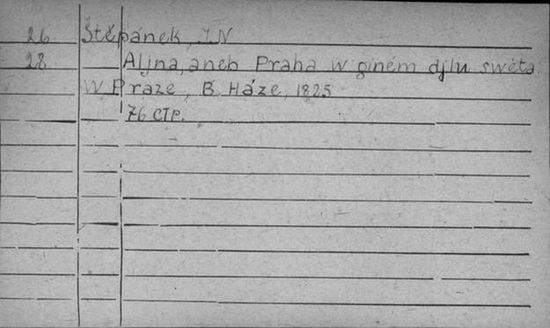 26 Štěpánek, J N
28 Aljna, aneb Praha w giném djlu swěta.
W Praze, B. Háze, 1825
76 стр.